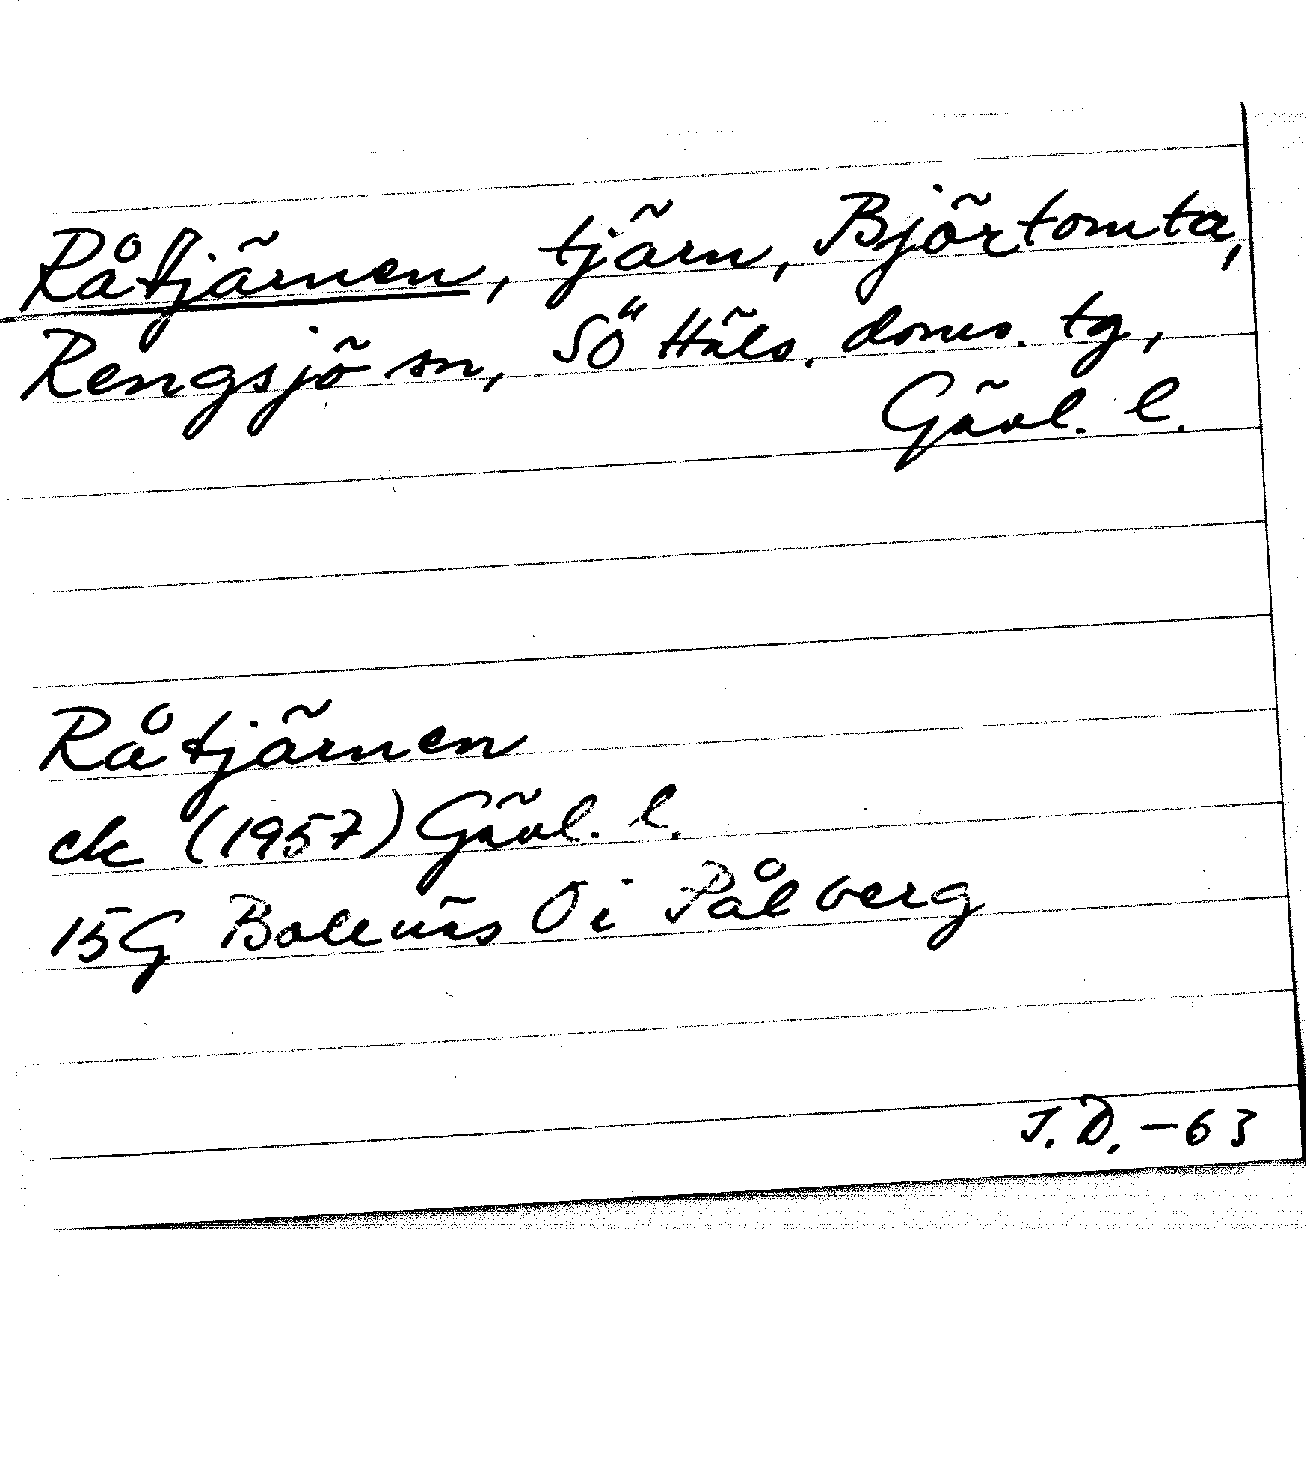 Råtjärnen, tjärn, Björtomta,
Rengsjö sn, SÖ Häls. doms. tg,
Gävl. l.
Råtjärnen
ek (1957) Gävl. l.
15G Bollnäs Ö i Pålberg
J.D. -63